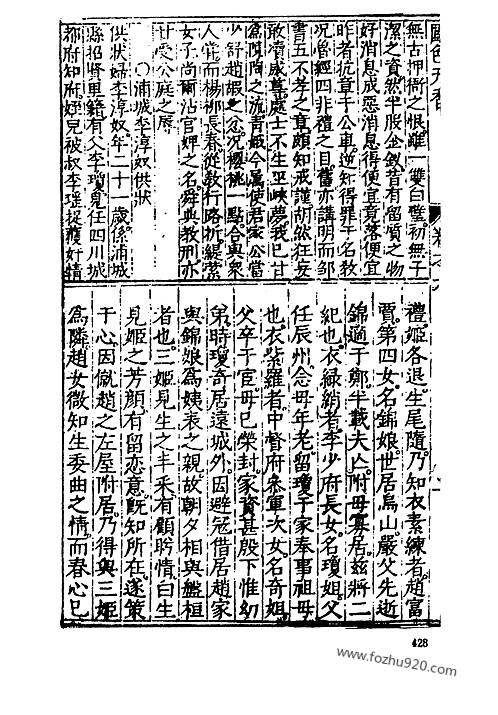 國色天香
無古押衙之恨雖一雙白璧初無子
潔之資然半股金釵昔有留質之物
好消息成惡消息得便宜竟落便宜
昨者抗章于公車逆知得罪于名教
况曾經四非禮之目舊亦講明而邹
書五不孝之章頗知戒謹胡然狂妄
敢瀆威尊處士不生巫峽夢我已甘
爲陌之流青娥今属使君家公當
少舒趙嘏之忿况櫻桃一點合與衆
人嘗而楊柳長春從教行路折縱縈
女子尚爾沾官婢之名舜與教刑亦
甘受公庭之辱
○浦城李淳奴供狀
供狀婦李淳奴年二十一歲係浦城
縣招賢里籍有父李瓊見任四川城
都府知府姪兒被叔李瑶捉獲奸情
禮姬各退生尾隨乃知衣素練者趙富
賈第四女名錦娘世居烏山嚴父先逝
錦適于鄭半載夫亡附母寡居兹將二
紀也衣綠綃者李少府長女名瓊姐父
任辰州念母年老留瓊于家奉事祖母
也衣紫羅者中督府叅軍次女名奇姐
父卒于官母巳榮封家資甚殷下惟幼
弟時瓊奇居遠城外因避冦借居趙家
與錦娘爲姨表之親故朝夕相與盤桓
者也三姬見生之丰采有顧盻情曰生
見姬之芳顏有留恋意旣知所在遂策
于心因僦趙之左屋附居乃得與三姬
爲隣趙女微知生委曲之情而春心巳
428
www.fozhu920.com